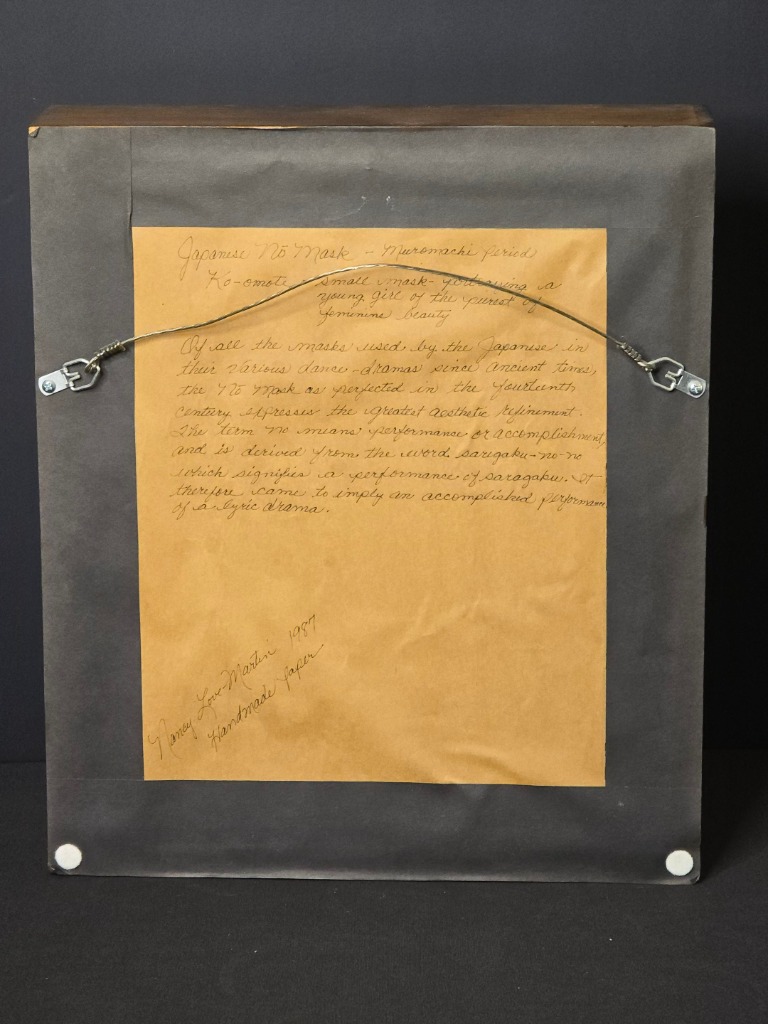 Japanese Nō Mask - Muromachi Period
Ko-omote - small mask - portraying a
young girl of the purest of
feminine beauty
Of all the masks used by the Japanese in
their various dance-dramas since ancient times,
the Nō Mask as perfected in the fourteenth
century, expresses the greatest aesthetic refinement.
The term no means performance or accomplishment,
and is derived from the word sarugaku-no-no
which signifies a performance of saragaku. It
therefore came to imply an accomplished performance
of a lyric drama.
Nancy Love-Martin 1987
Handmade paper